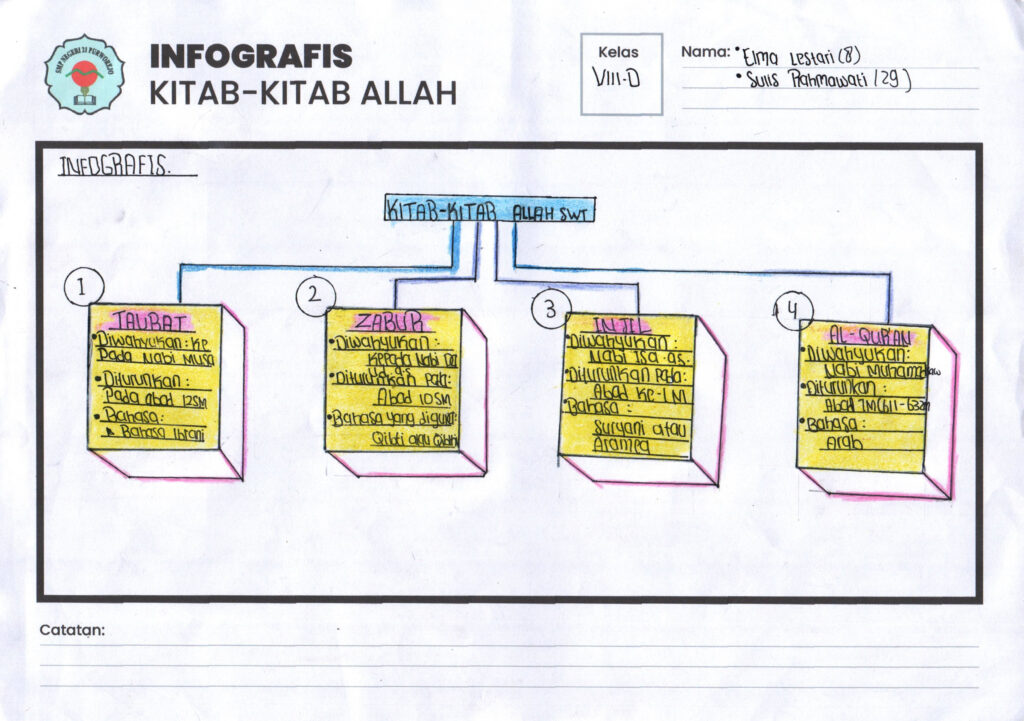 SMP NEGERI 21 PURWOREJO
INFOGRAFIS
KITAB-KITAB ALLAH
Kelas
VIII-D
Nama: • Elma Lestari (8)
• Sulis Rahmawati (29)
INFOGRAFIS.
KITAB-KITAB ALLAH SWT
1
TAURAT
• Diwahyukan: Ke
Pada Nabi Musa
• Diturunkan:
Pada abad 12SM
• Bahasa:
Bahasa Ibrani
2
ZABUR
• Diwahyukan:
Kepada Nabi Da
ud as
• Diturunkan Pada:
Abad 10SM
• Bahasa yang
Qibti atau Qibti
3
INJIL
• Diwahyukan:
Nabi Isa as.
• Diturunkan Pada:
Abad Ke-1M
• Bahasa:
Suryani atau
Aramea
4
AL-QUR'AN
• Diwahyukan:
Nabi Muhammad saw
• Diturunkan:
Abad 7M (611-632M
• Bahasa:
Arab
Catatan: